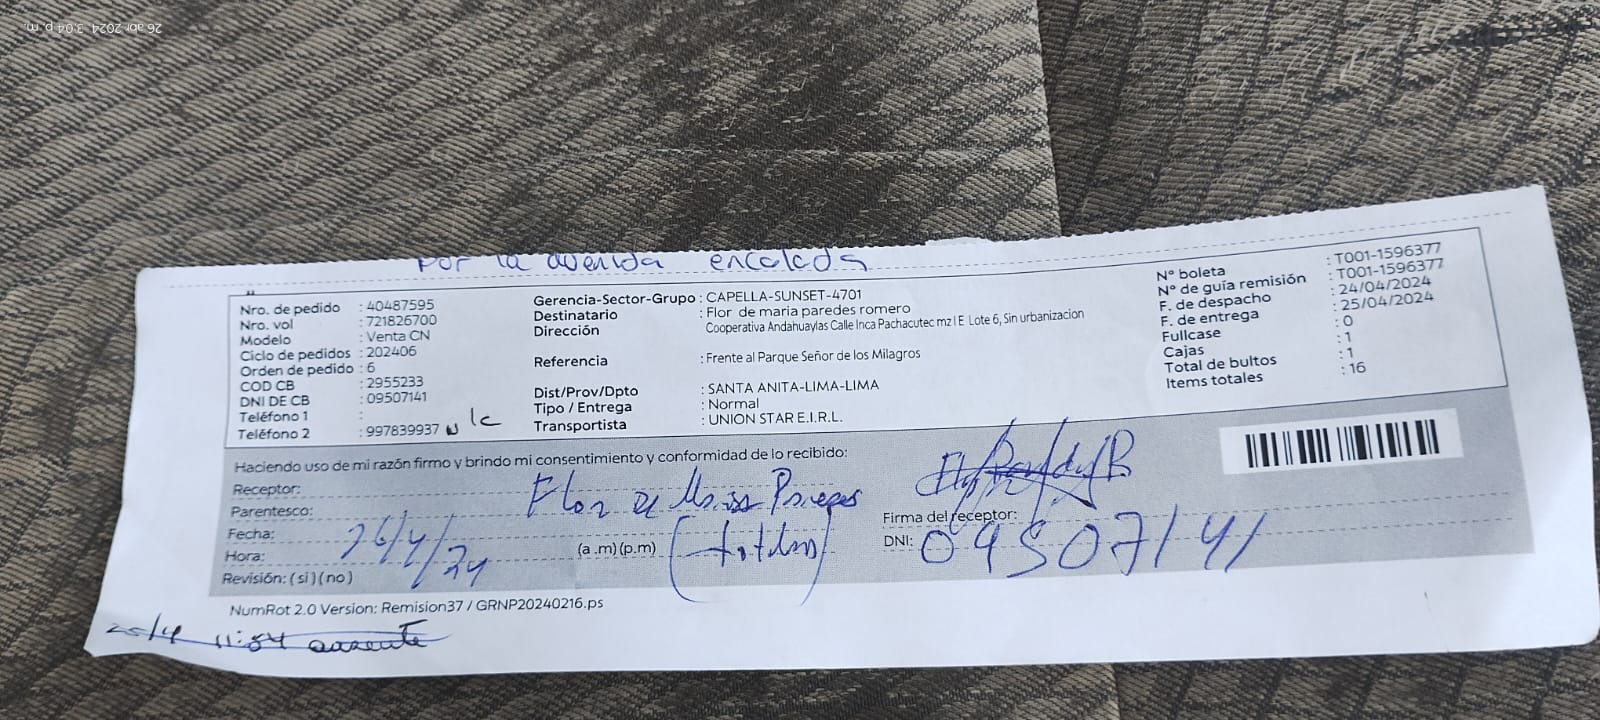 26 abr 2024 3:04 p. m.
Por la avenida encalada
Nro. de pedido : 40487595
Nro. vol : 721826700
Modelo : Venta CN
Ciclo de pedidos : 202406
Orden de pedido : 6
COD CB : 2955233
DNI DE CB : 09507141
Teléfono 1 :
Teléfono 2 : 997839937
Gerencia-Sector-Grupo : CAPELLA-SUNSET-4701
Destinatario : Flor de maria paredes romero
Dirección : Cooperativa Andahuaylas Calle Inca Pachacutec mz I E Lote 6, Sin urbanizacion
Referencia : Frente al Parque Señor de los Milagros
Dist/Prov/Dpto : SANTA ANITA-LIMA-LIMA
Tipo / Entrega : Normal
Transportista : UNION STAR E.I.R.L.
N° boleta : T001-1596377
N° de guía remisión : T001-1596377
F. de despacho : 24/04/2024
F. de entrega : 25/04/2024
Fullcase : 0
Cajas : 1
Total de bultos : 1
Items totales : 16
Haciendo uso de mi razón firmo y brindo mi consentimiento y conformidad de lo recibido:
Receptor: Flor de Maria
Parentesco: (titular)
Fecha: 26/4/24
Hora: (a .m) (p.m)
Revisión: ( si ) ( no )
Firma del receptor:
DNI: 09507141
NumRot 2.0 Version: Remision37 / GRNP20240216.ps
25/4 11:54 ausente